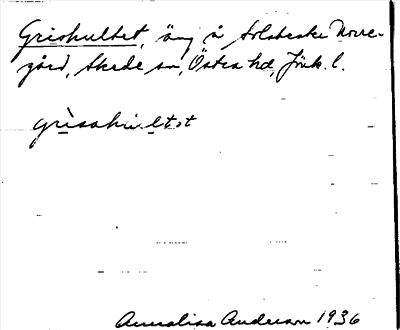 Grishultet, äng å Holsbeske Norre-
gård, Skede sn, Östra hd, Jönk. l.
grìsahu ltət
Annalisa Anderson 1936